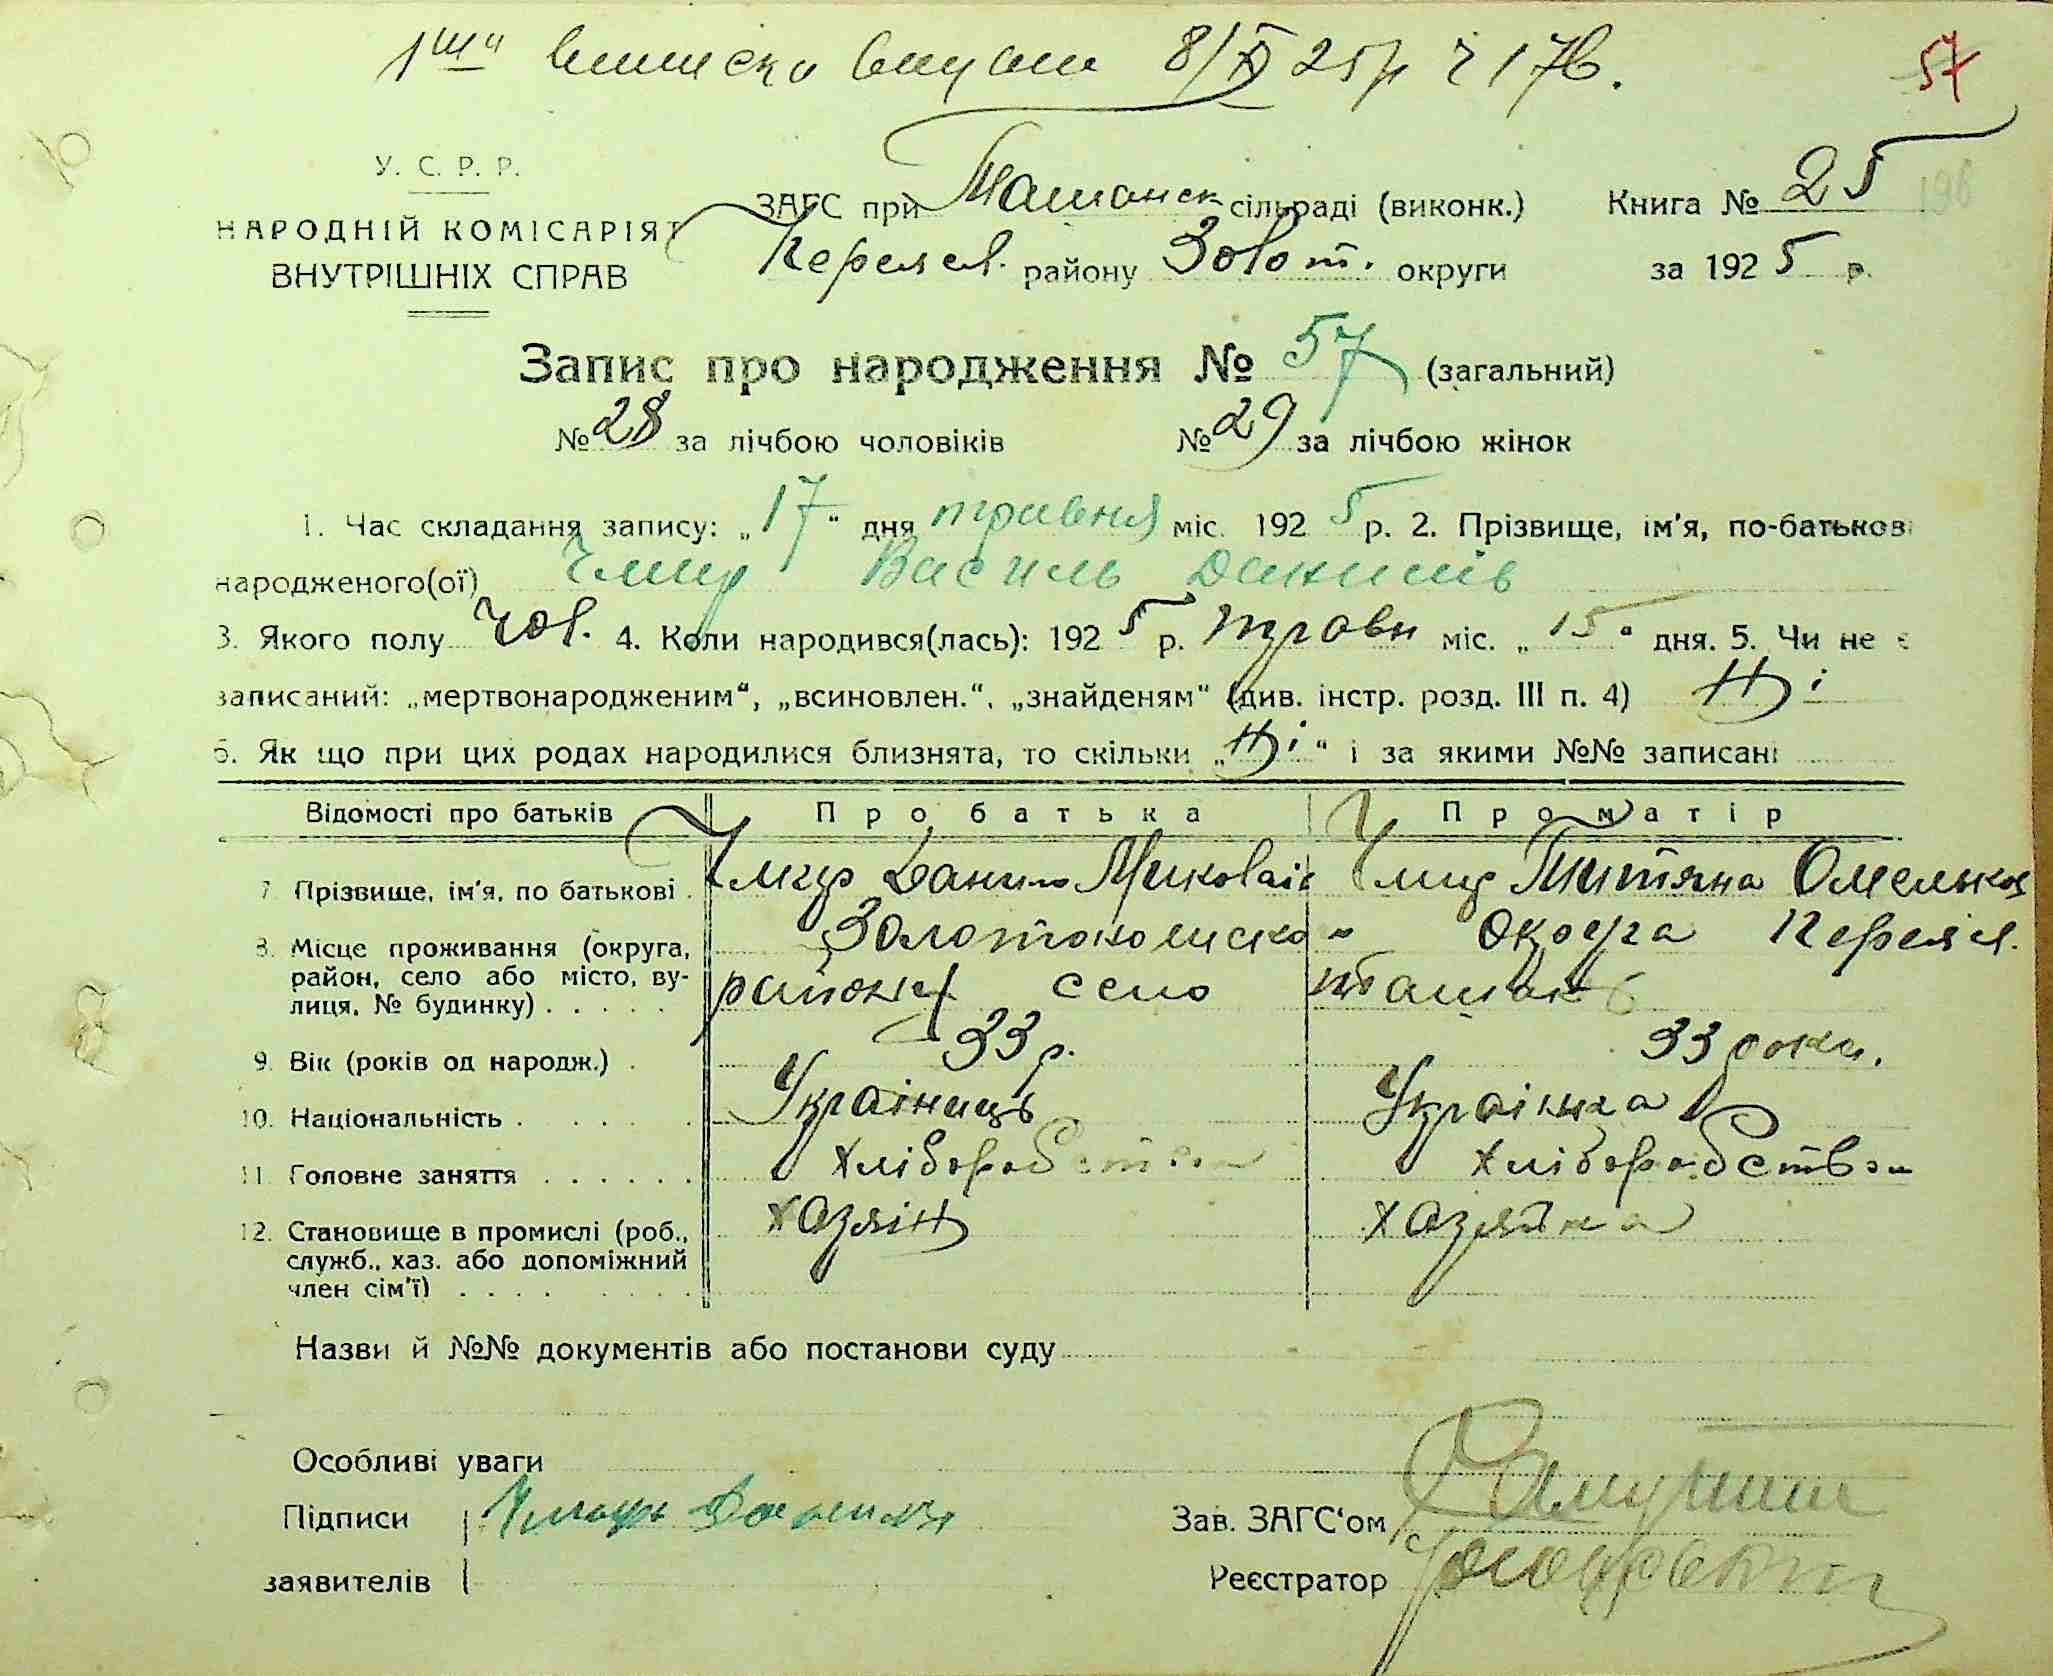 8/X 25р ч 176.
57
У. С. Р. Р.
НАРОДНІЙ КОМІСАРІЯТ
ВНУТРІШНІХ СПРАВ
ЗАГС при Ташанск сільраді (виконк.) Книга № 25 196
Переясл. району Золот. округи за 1925 р.
Запис про народження № 57 (загальний)
№ 28 за лічбою чоловіків № 29 за лічбою жінок
1. Час складання запису: „17“ дня травня міс. 1925 р. 2. Прізвище, ім'я, по-батькові
народженого(ої) Чмир Василь Данилів
3. Якого полу Чол. 4. Коли народився(лась): 1925 р. Травн міс. „15“ дня. 5. Чи не є
записаний: „мертвонародженим“, „всиновлен.“, „знайденям“ (див. інстр. розд. III п. 4) Ні
6. Як що при цих родах народилися близнята, то скільки „Ні“ і за якими №№ записані
Відомості про батьків Про батька Про матір
7. Прізвище, ім'я, по батькові . Чмир Данило Миколаів Чмир Титяна Омельков
8. Місце проживання (округа, район, село або місто, вулиця, № будинку) . . . . . Золотоношско округа Переясл.
району село Ташань
9. Вік (років од народж.) . 33 р. 33 роки.
10. Національність . . . . . Українець Українка
11. Головне заняття . . . . . . хліборобством хліборобством
12. Становище в промислі (роб., служб., хаз. або допоміжний член сім'ї) . . . . хазяін хазяйка
Назви й №№ документів або постанови суду
Особливі уваги
Підписи Чмир Данило Зав. ЗАГС'ом
заявителів Реєстратор